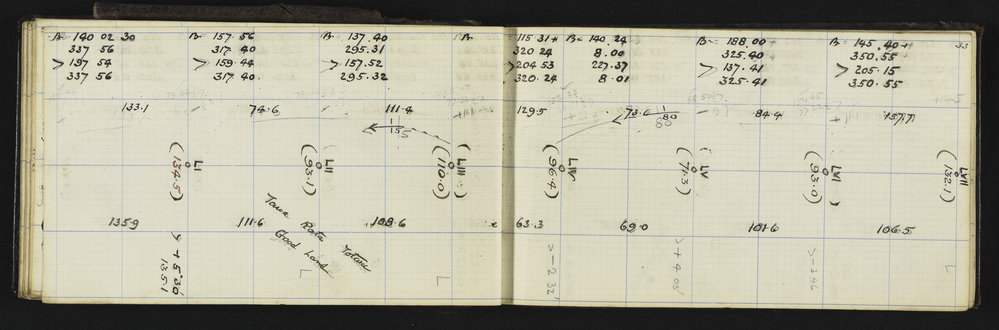 B- 140 02 30
337 56
> 197 54
337 56
B- 157.56
317.40
> 159.44
317.40
B- 137.40
295.31
> 157.52
295.32
B- 115 31+
320 24
> 204 53
320.24
B- 140.24
8.00
227.37
8.01
B- 188.00+
325.40+
> 137.41
325.41
B- 145.40+
350.55
> 205.15
350.55
33
133.1
74.6
111.4
129.5
73.6
84.4
157.7
1
15
1
80
LI
(134.5)
LII
(93.1)
LIII
(110.0)
LIV
(96.4)
LV
(71.3)
LVI
(93.0)
LVII
(132.1)
135.9
111.6
108.6
63.3
69.0
101.6
106.5
Tawa Rata Totara
Good Land
L
L
L
> + 5°36'
135.1
> - 2°32'
> + 4°03'
> - 3°46